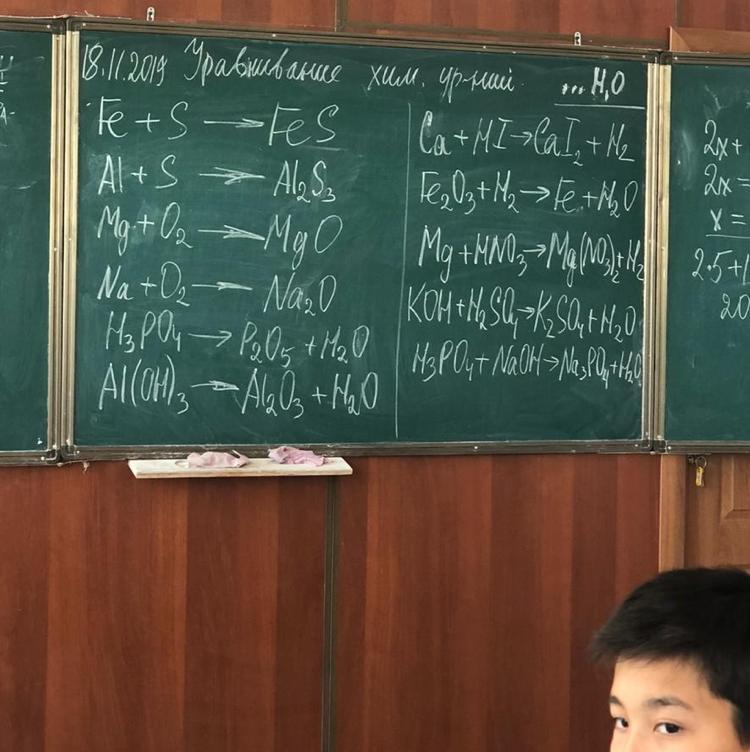 18.11.2019 Уравнивание хим. ур-ний.
... H₂O
Fe + S → FeS
Al + S → Al₂S₃
Mg + O₂ → MgO
Na + O₂ → Na₂O
H₃PO₄ → P₂O₅ + H₂O
Al(OH)₃ → Al₂O₃ + H₂O
Ca + HI → CaI₂ + H₂
Fe₂O₃ + H₂ → Fe + H₂O
Mg + HNO₃ → Mg(NO₃)₂ + H₂
KOH + H₂SO₄ → K₂SO₄ + H₂O
H₃PO₄ + NaOH → Na₃PO₄ + H₂O
2x +
2x =
x =
2·5+1
20